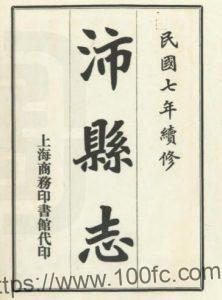 民國七年續修
沛縣志
上海商務印書館代印
https://www.100fc.com